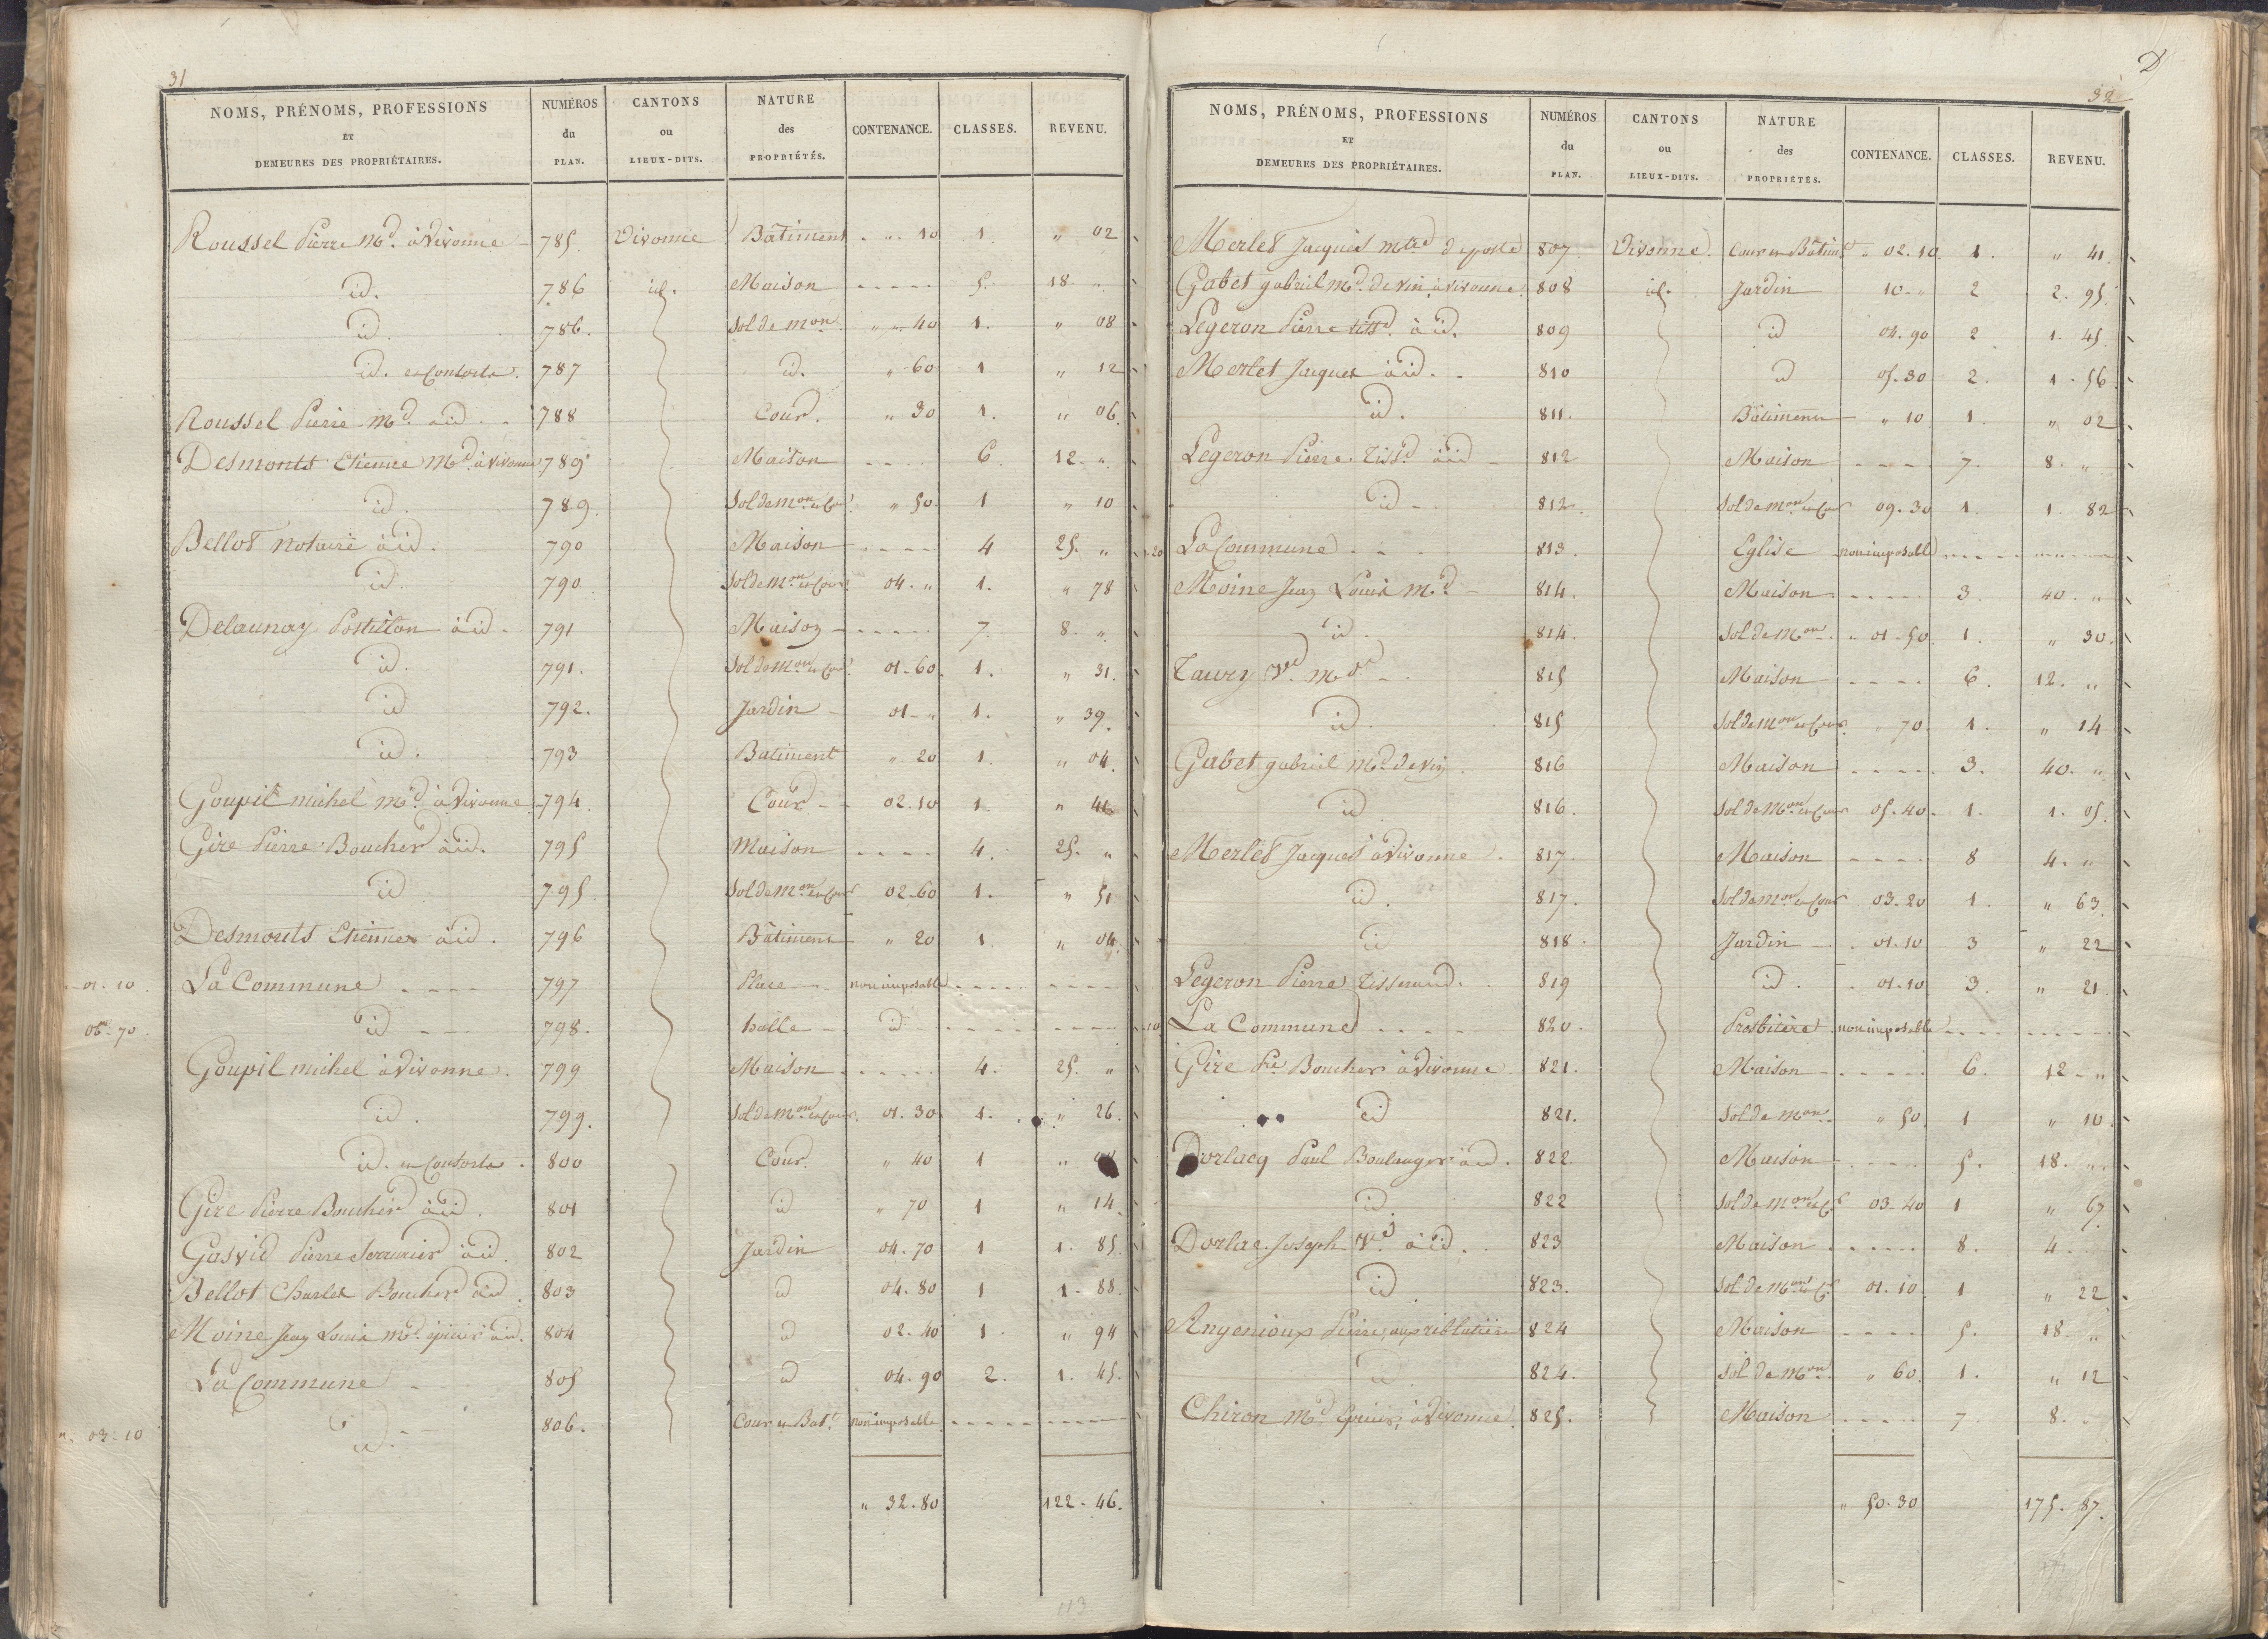 31
NOMS, PRÉNOMS, PROFESSIONS ET DEMEURES DES PROPRIÉTAIRES. NUMÉROS du PLAN. CANTONS ou LIEUX-DITS. NATURE des PROPRIÉTÉS. CONTENANCE. CLASSES. REVENU.
Roussel Pierre Md. à Vivonne - 785. Vivonne Bâtiment . " 10 1. " 02
id. 786 id. Maison - - - - - 5. 18. "
id. 786. Sol de mon. " 40 1. " 08
id. et Consorts. 787 id. " 60 1 " 12
Roussel Pierre Md. à id. 788 Cour. " 30 1. " 06
Desmonts Etienne Md. à Vivonne 789 Maison - - - - 6. 12. "
id. 789. Sol de mon. et Cour " 50. 1 " 10
Bellot Notaire à id. 790 Maison - - - - 4 25. "
id. 790 Sol de mon. et Cour 04. " 1. " 78
Delaunay Postillon à id. 791 Maison - - - - - 7. 8. "
id. 791. Sol de mon et Cour 01. 60. 1. " 31.
id 792. Jardin - 01 - " 1. " 39.
id. 793 Batiment " 20 1. " 04.
Goupil michel Md. à Vivonne 794. Cour - - 02. 10 1. " 41
Gire Pierre Boucher à id. 795 Maison - - - - 4. 25. "
id 795. Sol de mon. et Cour 02-60 1. " 51
Desmonts Etienne à id. 796 Bâtiment " 20 1. " 04.
01. 10. La Commune - - - - 797 Place - - non imposable - - - - - - - -
06. 70. id - - - 798. halle - id - - - - - - - -
Goupil michel à Vivonne. 799 Maison - - - - - 4. 25. "
id. 799. Sol de mon et Cour. 01. 30. 1. " 26.
id. et Consorts. 800 Cour. " 40 1 "
Gire Pierre Boucher à id. 801 id " 70 1 " 14.
Gasvid Pierre Serrurier à id. 802 Jardin 04. 70 1 1. 85.
Bellot Charles Boucher à id. 803 id 04. 80 1 1. 88.
Moine Jean Louis Md. épicier à id. 804 id 02. 40 1. " 94
La Commune 805 id 04. 90 2. 1. 45.
". 03. 10 id. - - 806. Cour et Bat. non imposable - - - - - - - -
" 32. 80 122. 46.
113
D
32
NOMS, PRÉNOMS, PROFESSIONS ET DEMEURES DES PROPRIÉTAIRES. NUMÉROS du PLAN. CANTONS ou LIEUX-DITS. NATURE des PROPRIÉTÉS. CONTENANCE. CLASSES. REVENU.
Merlet Jacques mtre de poste 807. Vivonne. Cour et Bâtimt. " 02. 10 1. " 41.
Gabet gabriel Md. de vin à vivonne. 808 id. Jardin 10 - " 2 2. 95.
Legeron Pierre tissd. à id. 809 id 04. 90 2 1. 45.
Merlet Jacques à id. - 810 id 05. 30 2. 1. 56.
id. 811. Bâtiment " 10 1. " 02
Legeron Pierre Tissd. à id - 812 Maison - - - - 7. 8. "
id - 812. Sol de mon et Cour 09. 30 1. 1. 82
20 La Commune - - - 813. Eglise non imposable - - - - - - - -
Moine Jean Louis Md - 814. Maison - - - - - 3. 40. "
id. 814. Sol de Mon. " 01-50. 1. " 30.
Taury Ve. mde - 815 Maison - - - - 6. 12. "
id. 815 Sol de mon et Cour. " 70. 1. " 14
Gabet gabriel Md. de vin. 816 Maison - - - - 3. 40. "
id 816. Sol de Mon. et Cour 05. 40. 1. 1. 05.
Merlet Jacques à Vivonne. 817. Maison - - - - 8 4. "
id. 817. Sol de mon et Cour 03. 20 1. " 63.
id 818. Jardin - . 01. 10 3 " 22
Legeron Pierre Tisserand. 819 id. . 01. 10 3. " 21
10 La Commune - - - - 820. Presbitère. non imposable - - - - - - - -
Gire Pre Boucher à Vivonne 821. Maison - - - - - 6. 12 - "
id 821. Sol de mon. " 50. 1 " 10.
Dorlacq Paul Boulanger à id. 822 Maison - - - - 5. 18. "
id. 822 Sol de mon et Cr 03-40 1 " 67.
Dorlac Joseph Ve. à id. 823 Maison - - - - - 8. 4. "
id. 823. Sol de Mon et Cr 01. 10. 1 " 22
Angenioux Pierre, 824 Maison - - - - 5. 18. "
id. 824. Sol de Mon. " 60. 1. " 12
Chiron Md Epicier, à Vivonne. 825. Maison - - - - 7. 8. "
" 50. 30 175. 87.